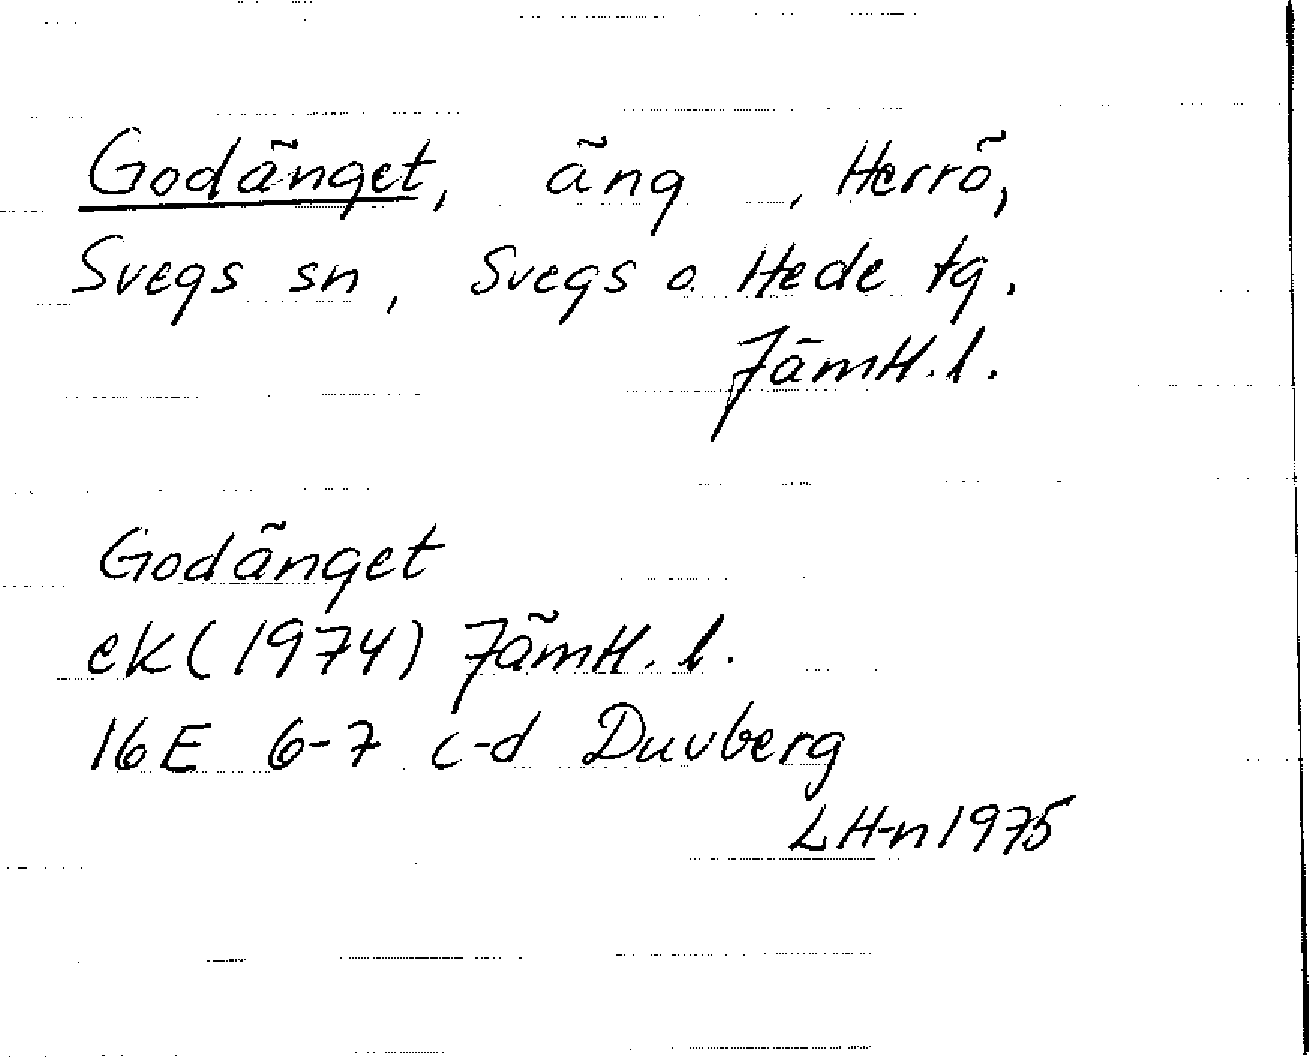 Godänget, äng , Herrö,
Svegs sn, Svegs o Hede tg.
Jämtl. l.
Godänget
ek (1974) Jämtl. l.
16E 6-7 c-d Duvberg
LH-n 1975